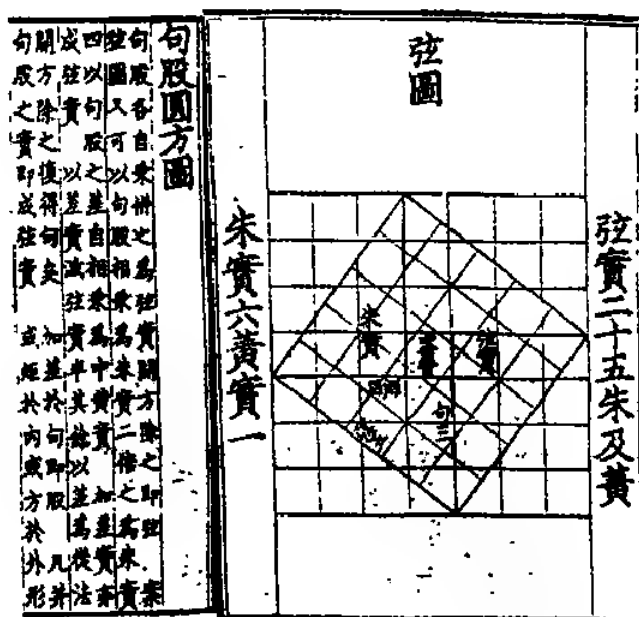 弦實二十五朱及黃
弦圖
弦實
句三
朱實
朱實六黃實一
句股圓方圖
句股各自乘併之為弦實開方除之即弦 案
弦圖又可以句股相乘為朱實二倍之為朱實
四以句股之差自相乘為中黃實 加差實亦
成弦實 以差實減弦實半其餘以差為從法
開方除之復得句矣 加差於句即股 凡并
句股之實即成弦實 或矩於內或方於外形